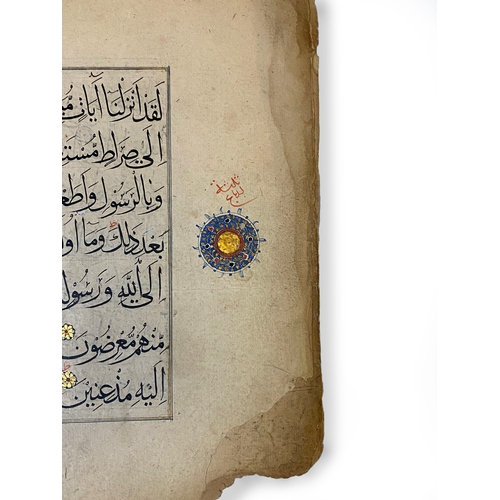 لَقَدْ أَنْزَلْنَا آيَاتٍ
إِلَى صِرَاطٍ
وَبِالرَّسُولِ وَأَطَعْ
بَعْدِ ذَلِكَ وَمَا أُو
إِلَى اللَّهِ وَرَسُولِ
مِنْهُمْ مُعْرِضُونَ
إِلَيْهِ مُذْعِنِينَ